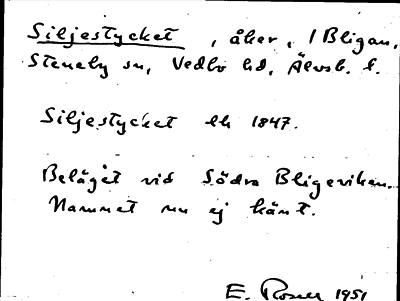 Siljestycket, åker, 1 Bligan,
Steneby sn, Vedbo hd, Älvsb. l.
Siljestycket lh 1847.
Beläget vid Södra Bligeviken.
Namnet nu ej känt.
E. Rosner 1951